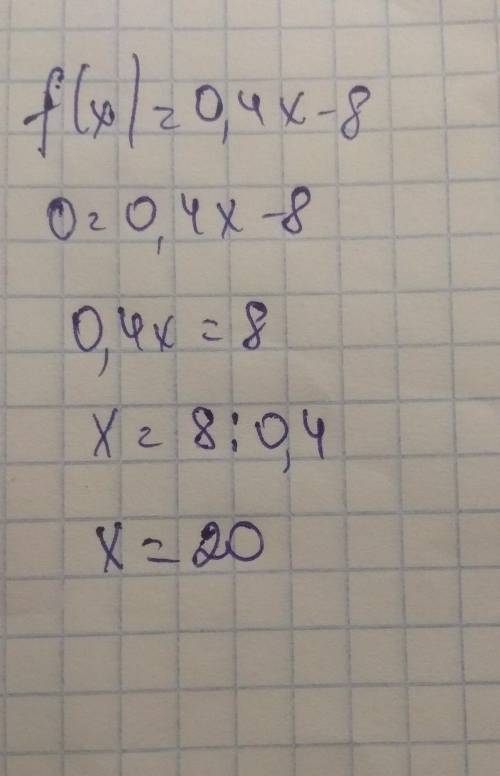 f(x) = 0,4x - 8
0 = 0,4x - 8
0,4x = 8
x = 8 : 0,4
x = 20